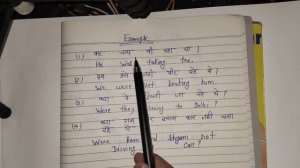 Example
(1) वह चाय पी रहा था।
He Was taking tea.
(2) हम उसे नहीं पीट रहे थे।
We were not beating him.
(3) क्या दिल्ली जा रहे थे?
Were they to Delhi?
(4) क्या राम श्याम कार नहीं चला
रहे थे
Were Ram Shyam not
Driving Car?